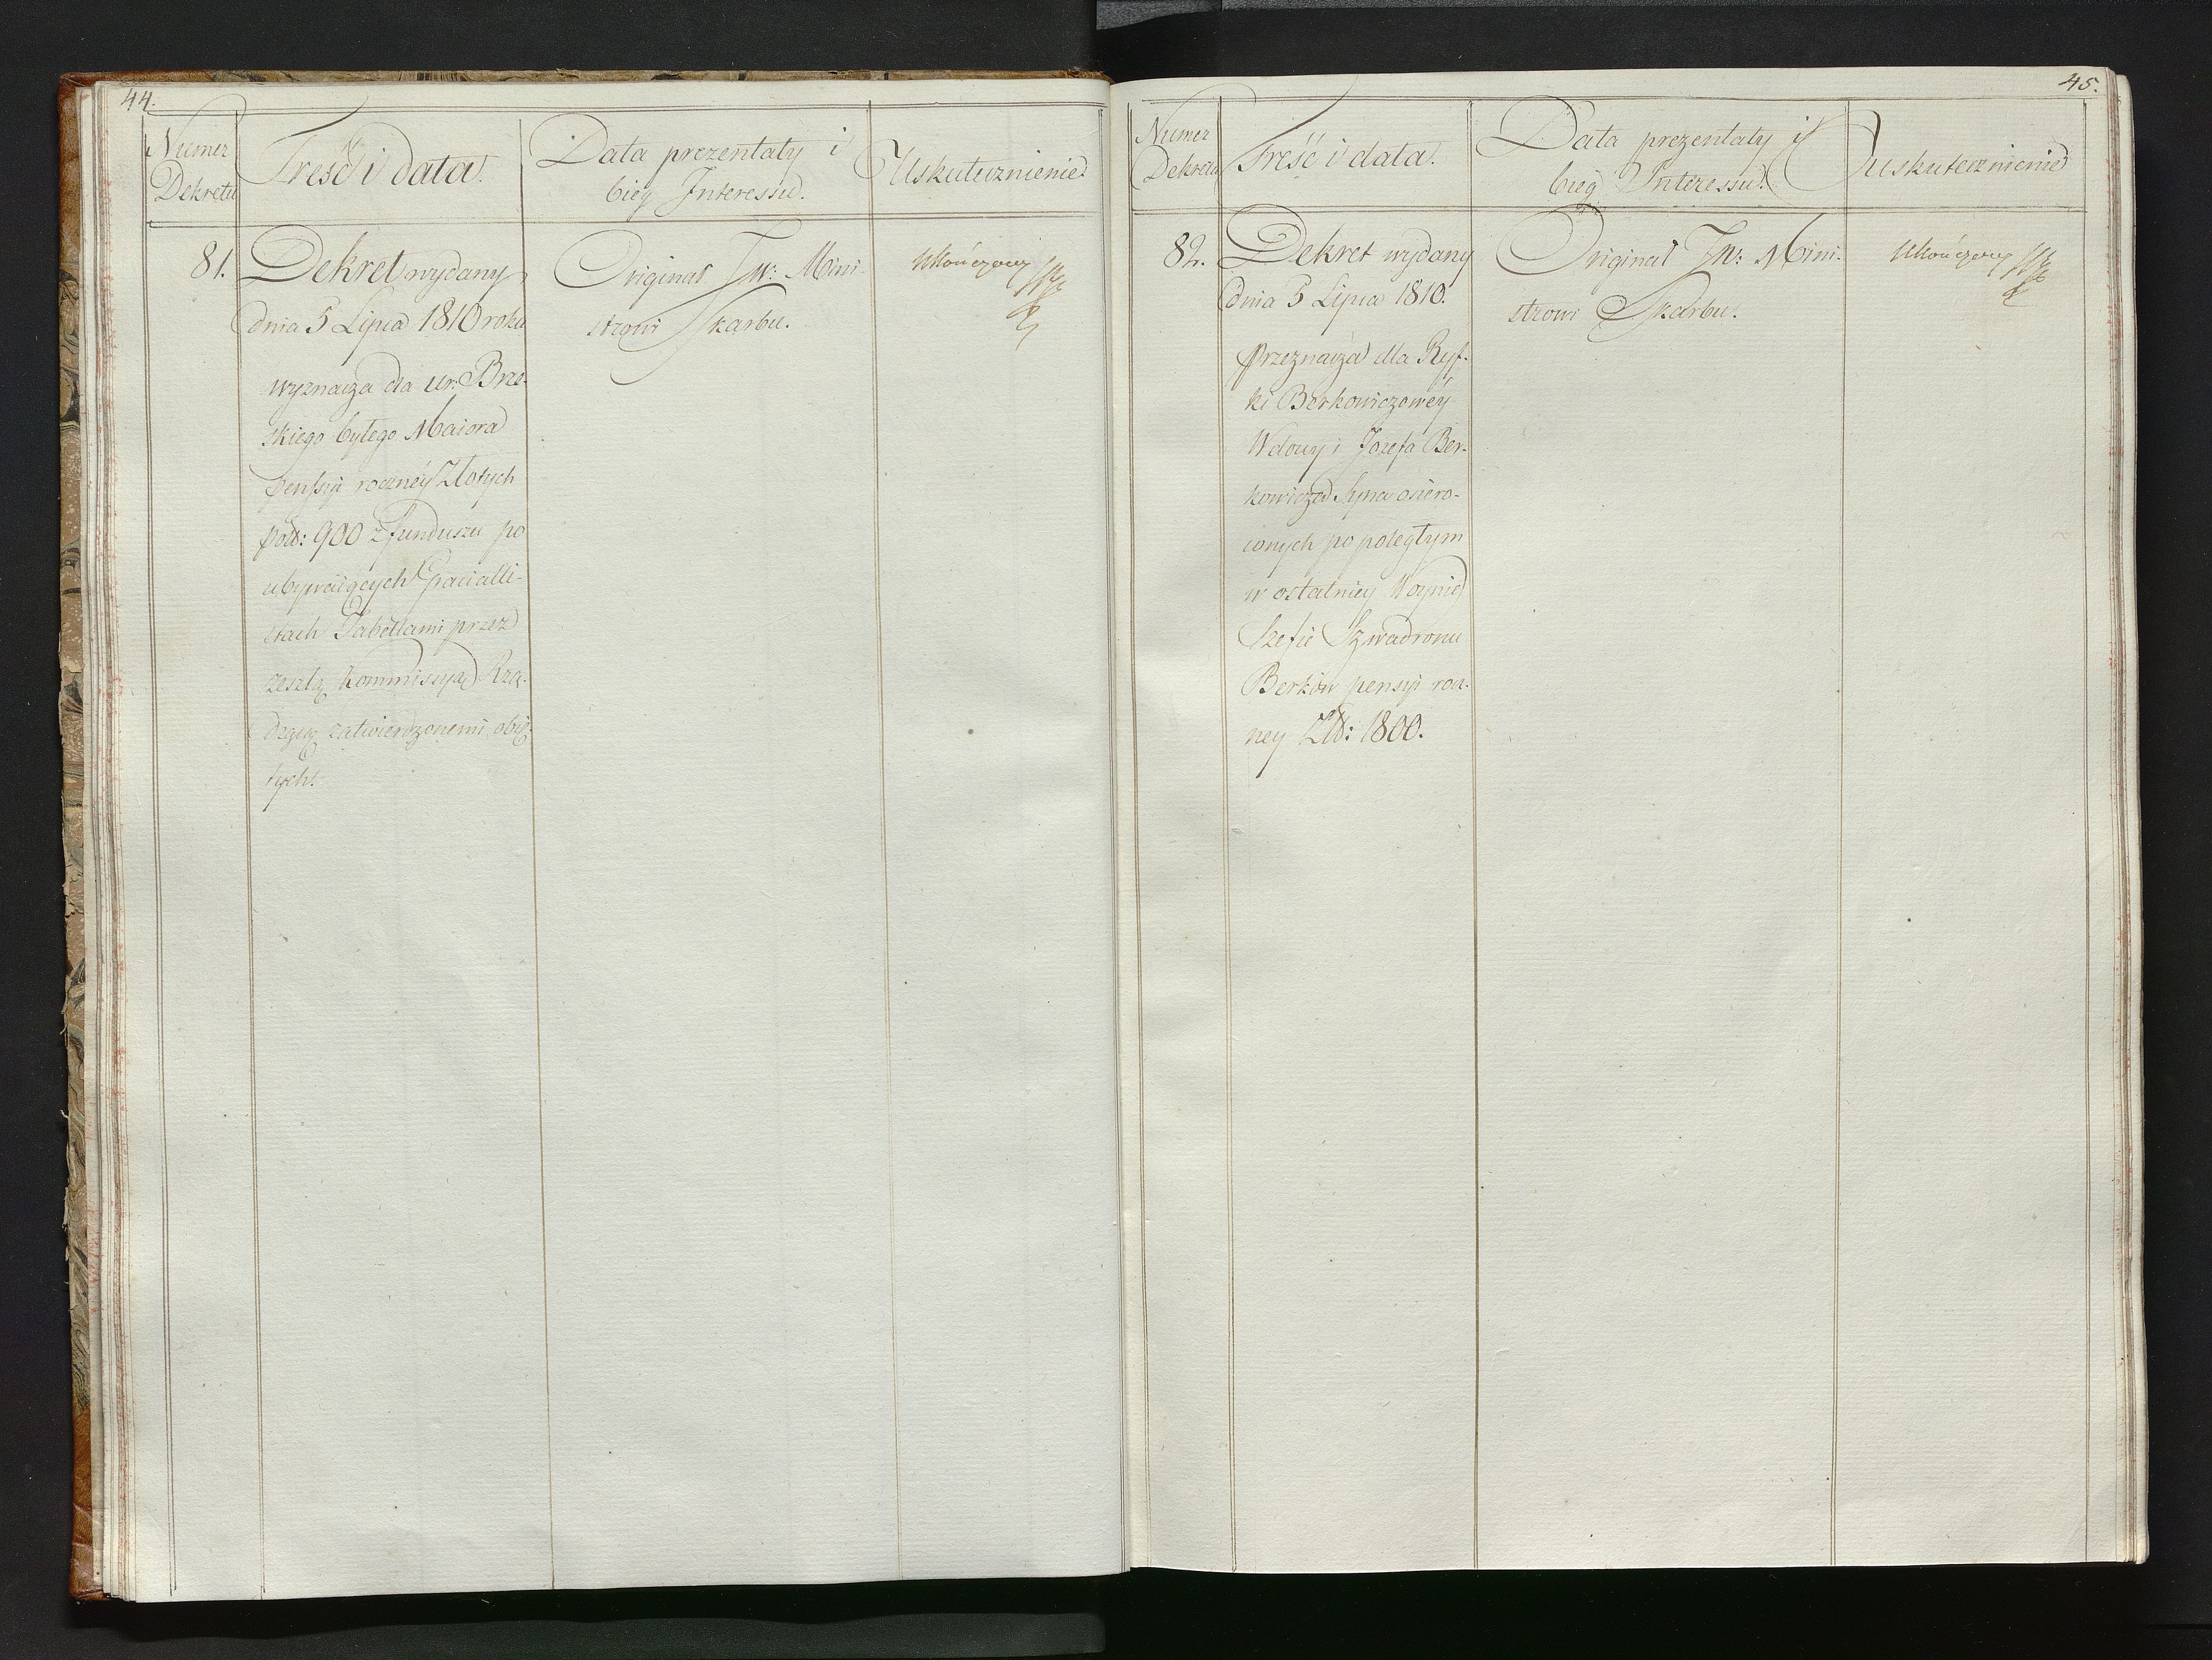 44.
Numer
Dekretu
Treść i data.
Data prezentaty i
bieg Interessu.
Uskutecznienie
81.
Dekret wydany
dnia 5 Lipca 1810 roku
wyznacza dla ur: Brze-
skiego byłego Maiora
pensyi roczney Złotych
pols: 900 z funduszu po
ubywaiących Gracialli-
stach Tabellami przez
zeszłą Kommissyą Rzą-
dzącą zatwierdzonemi obię-
tych.
Originał JW: Mini-
strowi Skarbu.
Ukończony
45.
Numer
Dekretu
Treść i data.
Data prezentaty i
bieg Interessu.
uskutecznienie
82.
Dekret wydany
dnia 5 Lipca 1810.
przeznacza dla Ryf-
ki Berkowiczowéy
Wdowy i Jozefa Ber-
kowicza Syna osiero-
conych po poległym
w ostatniey Woynie
Szefie Szwadronu
Berku pensyi rocz-
ney Zł: 1800.
Originał JW: Mini-
strowi Skarbu.
Ukończony